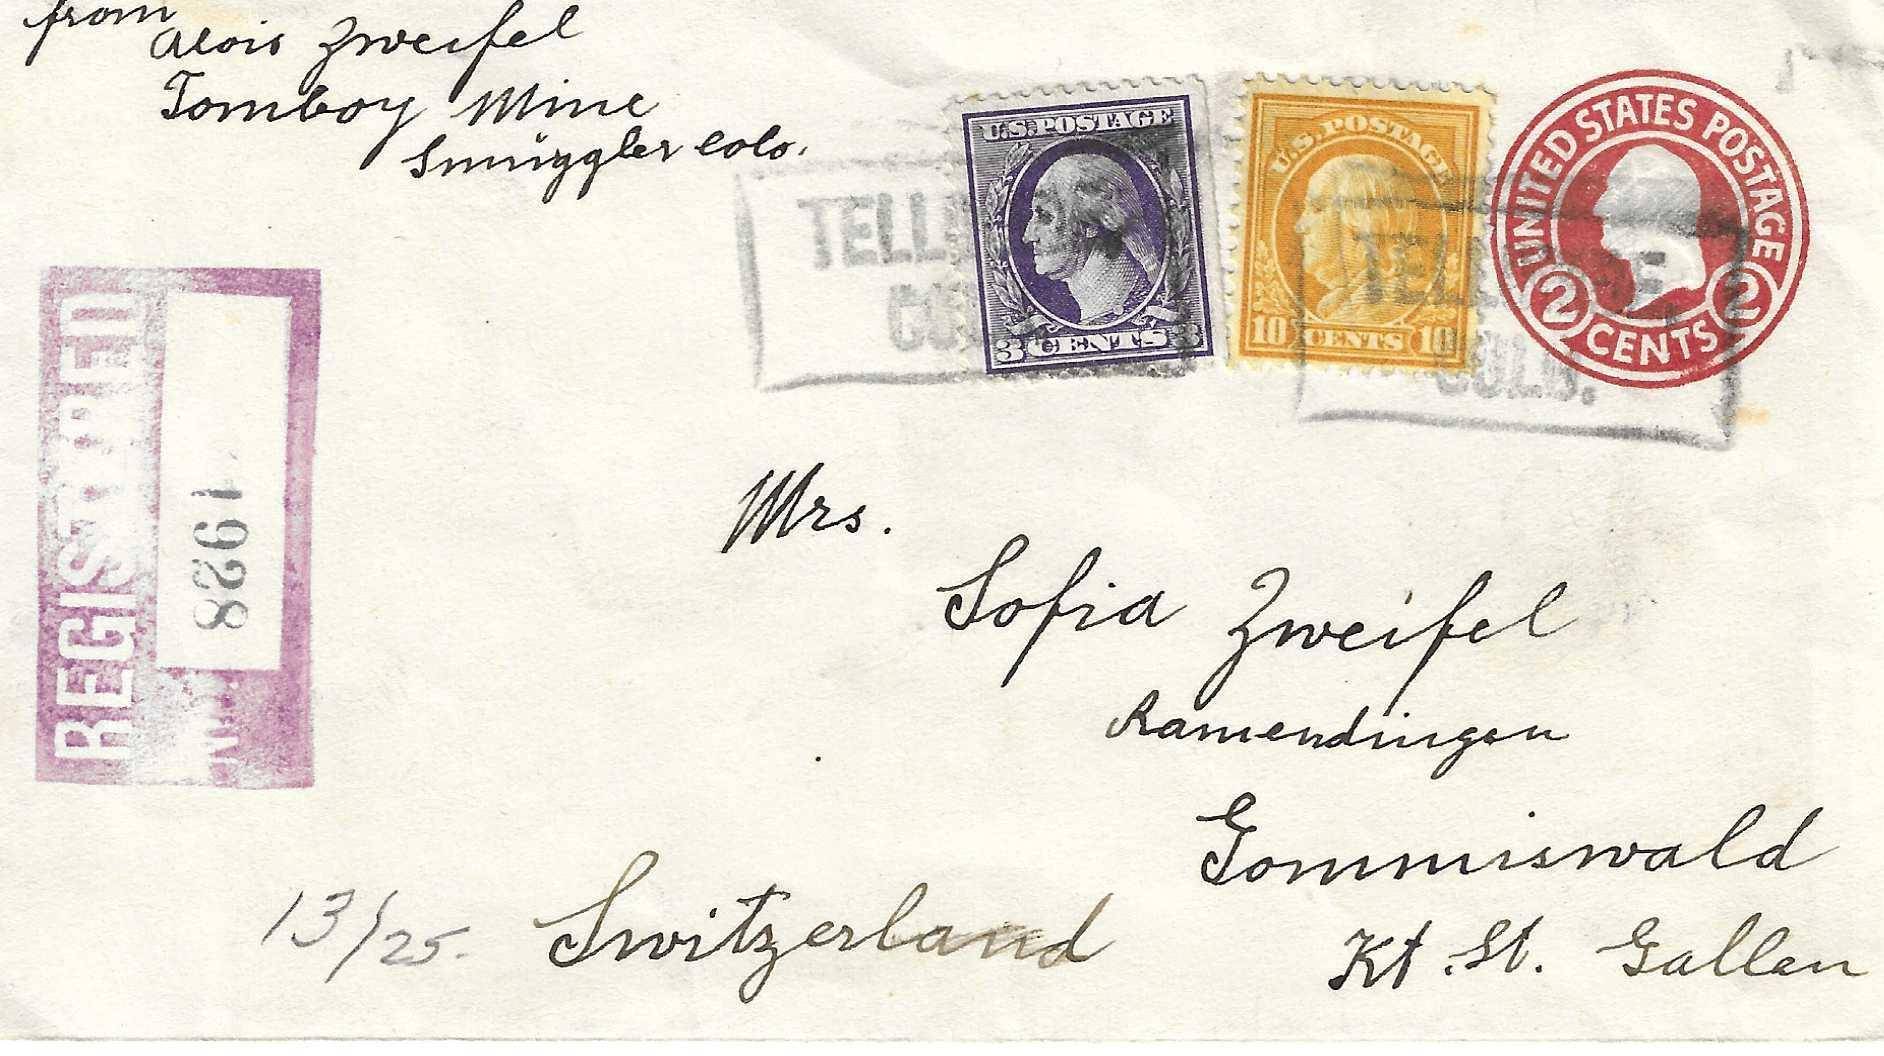 from
Alois Zweifel
Tomboy Mine
Smuggler Colo.
U.S. POSTAGE
3 CENTS 3
U.S. POSTAGE
10 CENTS 10
UNITED STATES POSTAGE
2 CENTS 2
TELL
CO
TELL E,
COLO.
REGISTERED
No. 1928
Mrs.
Sofia Zweifel
Ramendingen
Gommiswald
Kt. St. Gallen
Switzerland
13/25.